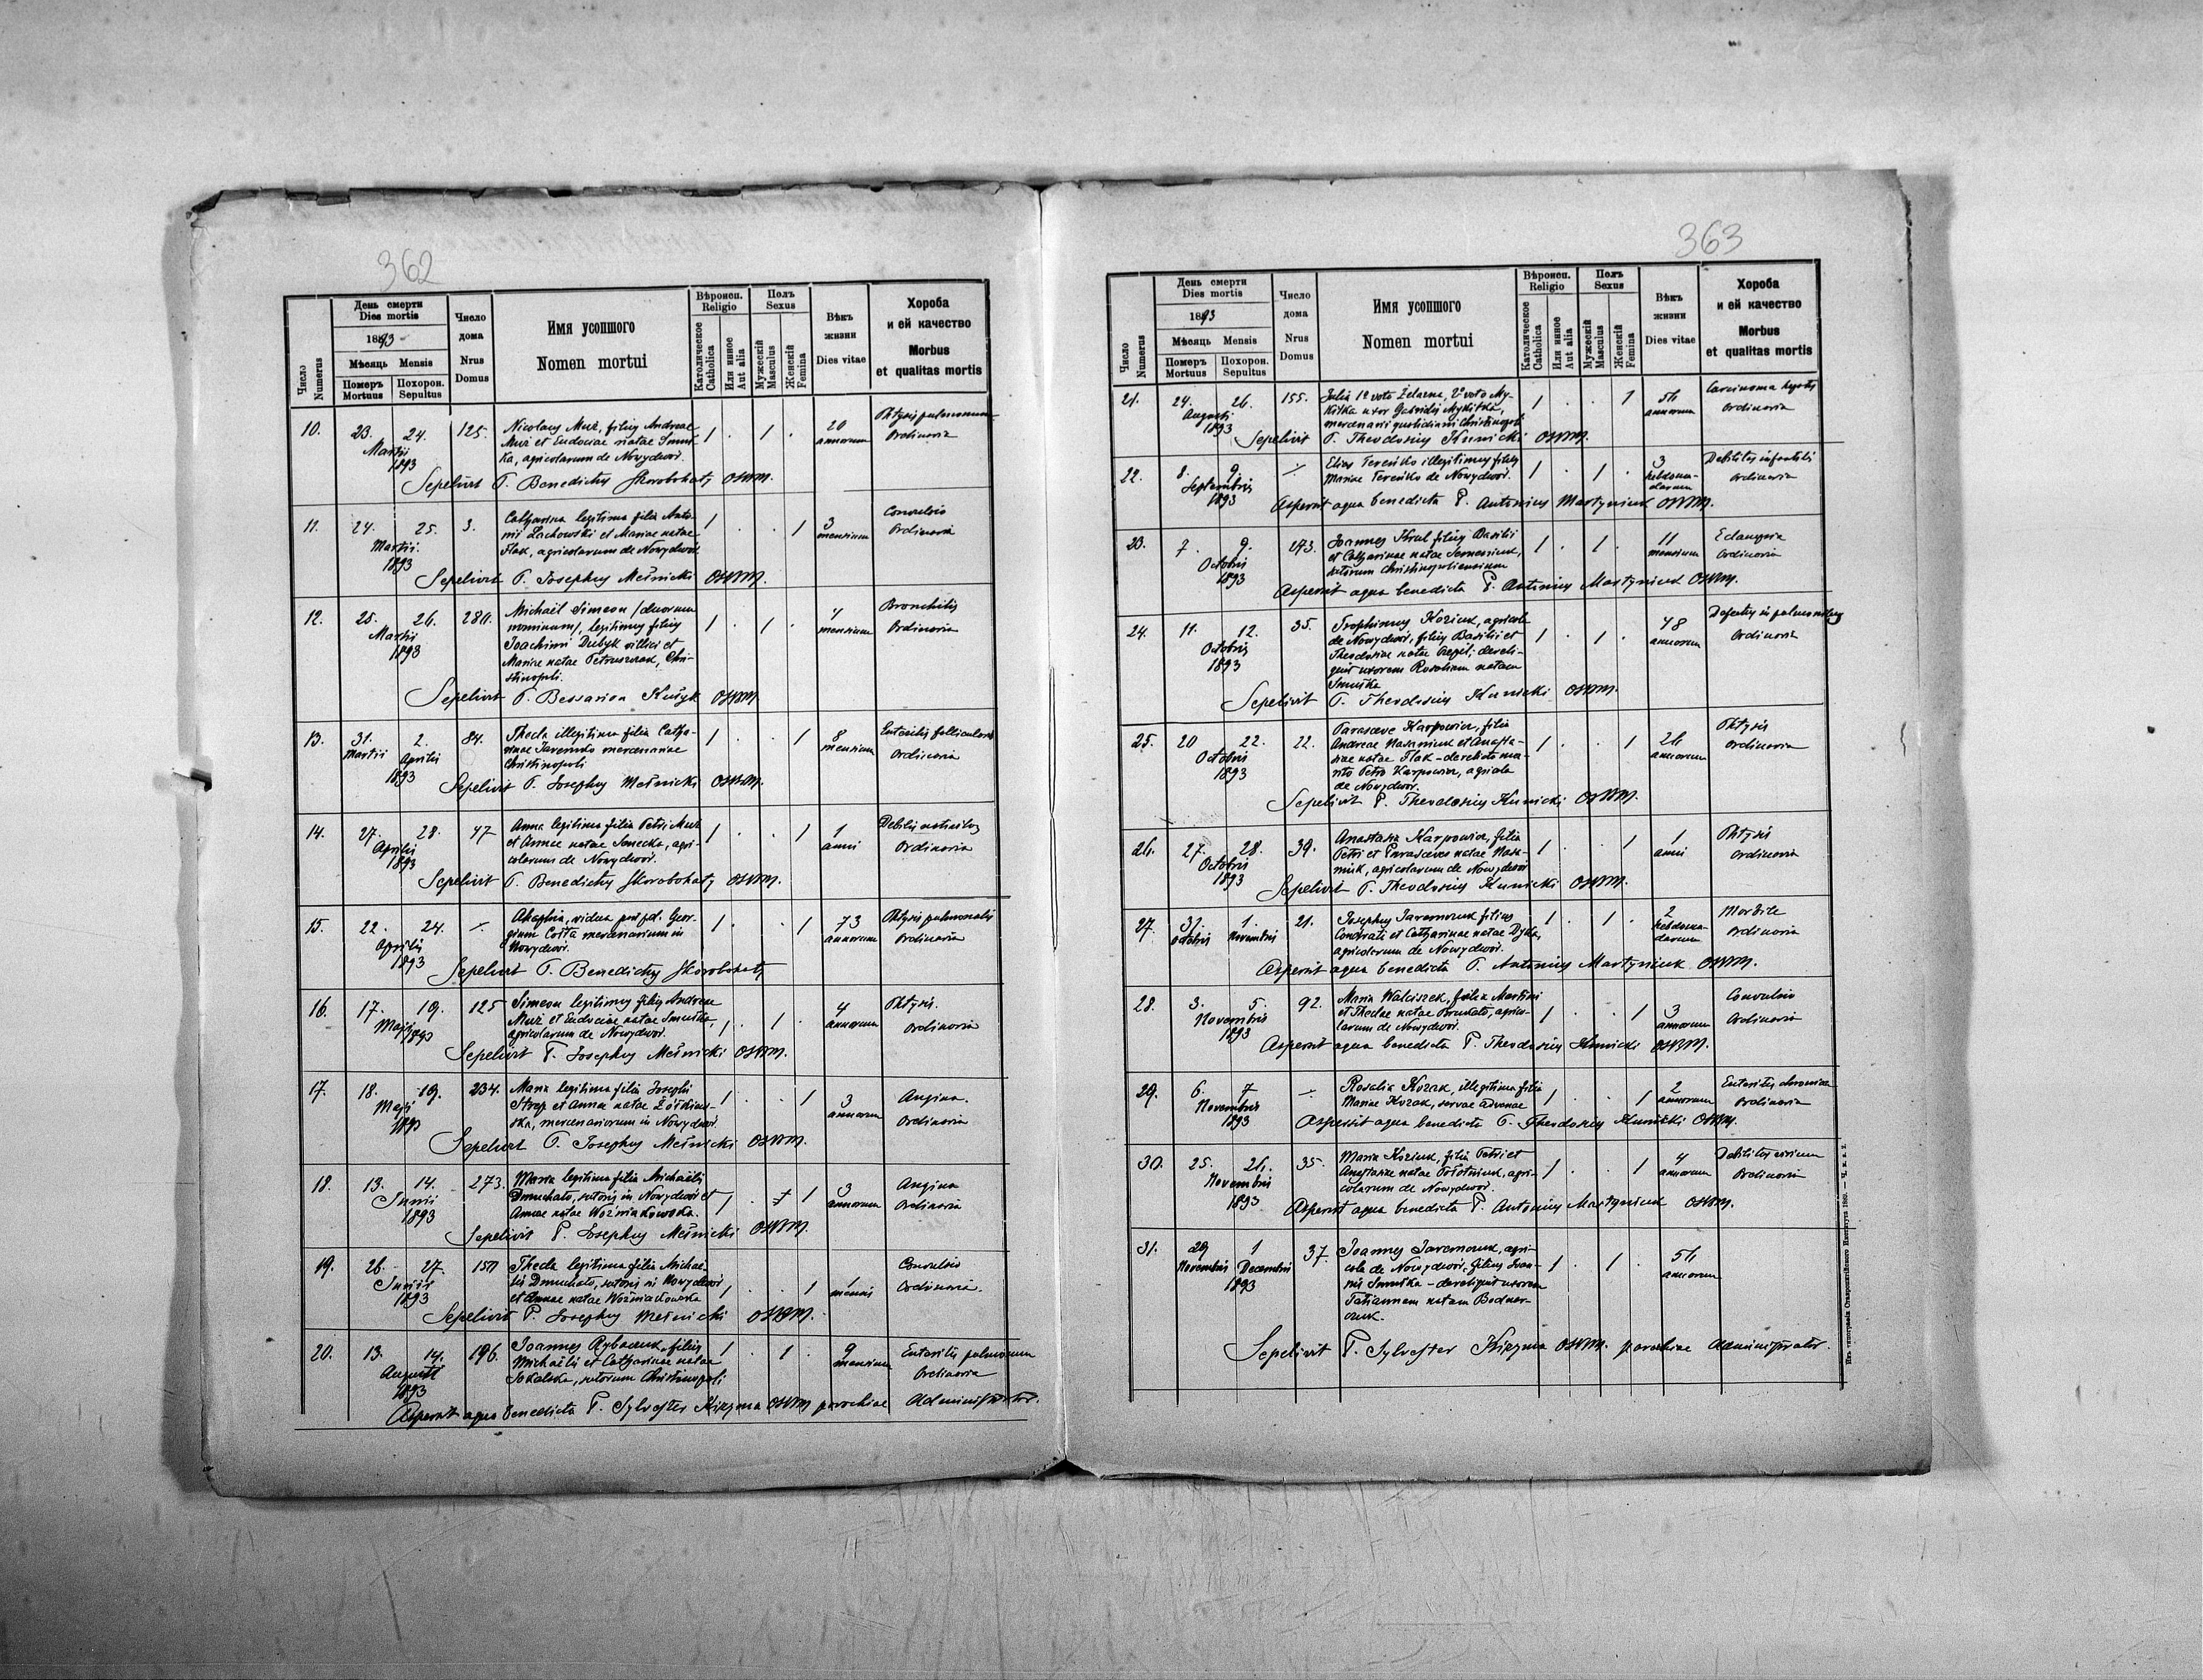 362
Число Numerus
День смерти
Dies mortis
1893
Мѣсяць Mensis
Померъ Mortuus
Похорон. Sepultus
Число дома
Nrus Domus
Имя усопшого
Nomen mortui
Вѣроисп. Religio
Католическое Catholica
Или инное Aut alia
Полъ Sexus
Мужескій Masculus
Женскій Femina
Вѣкъ жизни
Dies vitae
Хороба и ей качество
Morbus et qualitas mortis
10. 23. 24. 125. Nicolaus Muż, filius Andreae 1 . 1 . 20 Phtysis pulmonum
Martii Muż et Eudociae natae Smut- annorum Ordinaria
1893 ka, agricolarum de Nowydwór.
Sepelivit P. Benedictus Skorobohaty OSBM.
11. 24. 25. 3. Catharina legitima filia Anto- 1 . . 1 3 Convulsio
Martii nii Lachowski et Mariae natae mensium Ordinaria
1893 Flak, agricolarum de Nowydwór
Sepelivit P. Josephus Meśnicki OSBM.
12. 25. 26. Michaël Simeon /duorum 1 . 1 . mensium Bronchitis
Martii nominum/, legitimus filius Ordinaria
1893 Joachimi Dubyk villici et
Mariae natae Petruszczak, Chri-
stinopoli.
Sepelivit P. Bessarion OSBM.
13. 31. 2. 84. Thecla illegitima filia Catha- 1 . . 1 8 folliculosa
Martii Aprilis rinae mercenariae mensium Ordinaria
1893 Christinopoli
Sepelivit P. Josephus Meśnicki OSBM.
14. 27. 28. 47 Anna legitima filia Petri Muż 1 . . 1 1
Aprilis et Annae natae agri- anni Ordinaria
1893 colarum de Nowydwór.
Sepelivit P. Benedictus Skorobohaty OSBM.
15. 22. 24. vidua post Geor- 1 . . 1 73 Phtysis pulmonalis
Aprilis gium mercenarium in annorum Ordinaria
1893 Nowydwór.
Sepelivit P. Benedictus Skorobohaty
16. 17. 19. 125 Simeon legitimus filius Andreae 1 . 1 . 4 Phtysis.
Maji Muż et Eudociae natae Smutka, annorum Ordinaria
1893 agricolarum de Nowydwór.
Sepelivit P. Josephus Meśnicki OSBM.
17. 18. 19. 234. Maria legitima filia Josephi 1 . . 1 3 Angina.
Maji et Annae natae annorum Ordinaria
1893 ska, mercenariorum in Nowydwór.
Sepelivit P. Josephus Meśnicki OSBM.
18. 13. 14. 273. Maria legitima filia Michaëlis 1 . 1 3 Angina
Junii Dmuchało, sutoris in Nowydwór et annorum Ordinaria
1893 Annae natae Woźniakowska.
Sepelivit P. Josephus Meśnicki OSBM.
19. 26. 27. Thecla legitima filia Michaë- 1 . . 1 1 Convulsio
Junii lis Dmuchało, sutoris in Nowydwór mensis Ordinaria.
1893 et Annae natae Woźniakowska
Sepelivit P. Josephus Meśnicki OSBM.
20. 13. 14. 196. Joannes Rybaczuk, filius 1 . 1 . 9
Augusti Michaëlis et Catharinae natae mensium Ordinaria
1893 Sokalska, sutorum Christinopoli
Aspersit aqua benedicta P. Sylvester Kizyma OSBM parochiae Administrator.
363
Число Numerus
День смерти
Dies mortis
1893
Мѣсяць Mensis
Померъ Mortuus
Похорон. Sepultus
Число дома
Nrus Domus
Имя усопшого
Nomen mortui
Вѣроисп. Religio
Католическое Catholica
Или инное Aut alia
Полъ Sexus
Мужескій Masculus
Женскій Femina
Вѣкъ жизни
Dies vitae
Хороба и ей качество
Morbus et qualitas mortis
21. 24. 26. 155. Julia 1º voto Żelazna, 2º voto My- 1 . . 1 56 Carcinoma
Augusti kitka uxor Gabrielis Mykitka, annorum Ordinaria
1893 mercenarii quotidiani Christinopoli
Sepelivit P. Theodosius Kunicki OSBM.
22. 8. 9. Elias Tereńko illegitimus filius 1 . 1 . 3 Debilitas infantilis
Septembris Mariae Tereńko de Nowydwór. hebdoma- Ordinaria
1893 darum
Aspersit aqua benedicta P. Antonius Martyniuk OSBM.
23. 7. 9. 273. Joannes Król filius Basilii 1 . 1 . 11 Eclampsia
Octobris et Catharinae natae mensium Ordinaria
1893 sutorum Christinopoliensium
Aspersit aqua benedicta P. Antonius Martyniuk OSBM.
24. 11. 12. 35. Trophimus Koziuk, agricola 1 . 1 . 48
Octobris de Nowydwór, filius Basilii et annorum Ordinaria
1893 Theodosiae natae dereli-
quit uxorem Rosaliam natam
Smutka
Sepelivit P. Theodosius Kunicki OSBM.
25. 20 22. 22. Parasceve Karpowicz, filia 1 . . 1 26 Phtysis
Octobris Andreae Nasaniuk et Anasta- annorum Ordinaria
1893 siae natae Flak - derelicto ma-
rito Petro Karpowicz, agricola
de Nowydwór.
Sepelivit P. Theodosius Kunicki OSBM.
26. 27. 28. 39. Anastasia Karpowicz, filia 1 . . 1 1 Phtysis
Octobris Petri et Parasceves natae Nasa- anni Ordinaria
1893 niuk, agricolarum de Nowydwór
Sepelivit P. Theodosius Kunicki OSBM.
27. 31. 1. 21. Josephus Jaremczuk filius 1 . 1 . 2
Octobris Novembris Condrati et Catharinae natae Dyka, hebdoma- Ordinaria
agricolarum de Nowydwór. darum
Aspersit aqua benedicta P. Antonius Martyniuk OSBM.
28. 3. 5. 92. Maria Walciszek, filia Martini 1 . . 1 3 Convulsio
Novembris et Theclae natae agrico- annorum Ordinaria
1893 larum de Nowydwór.
Aspersit aqua benedicta P. Theodosius Kunicki OSBM.
29. 6. 7 Rosalia Kozak, illegitima filia 1 . . 1 2 chronica
Novembris Mariae Kozak, servae advenae annorum Ordinaria
1893
Aspersit aqua benedicta P. Theodosius Kunicki OSBM.
30. 25. 26. 35. Maria Koziuk, filia Petri et 1 . . 1 4 Debilitas virium
Novembris Anastasiae natae agri- annorum Ordinaria
1893 colarum de Nowydwór.
Aspersit aqua benedicta P. Antonius Martyniuk OSBM.
31. 29 1 37. Joannes Jaremczuk, agri- 1 . 1 . 56
Novembris Decembris cola de Nowydwór, filius Joan- annorum
1893 nis Smutka - dereliquit uxorem
Tatiannam natam Bodnar-
czuk.
Sepelivit P. Sylvester Kizyma OSBM. parochiae Administrator.
Изъ типографіи Ставропигійского Института 1889.